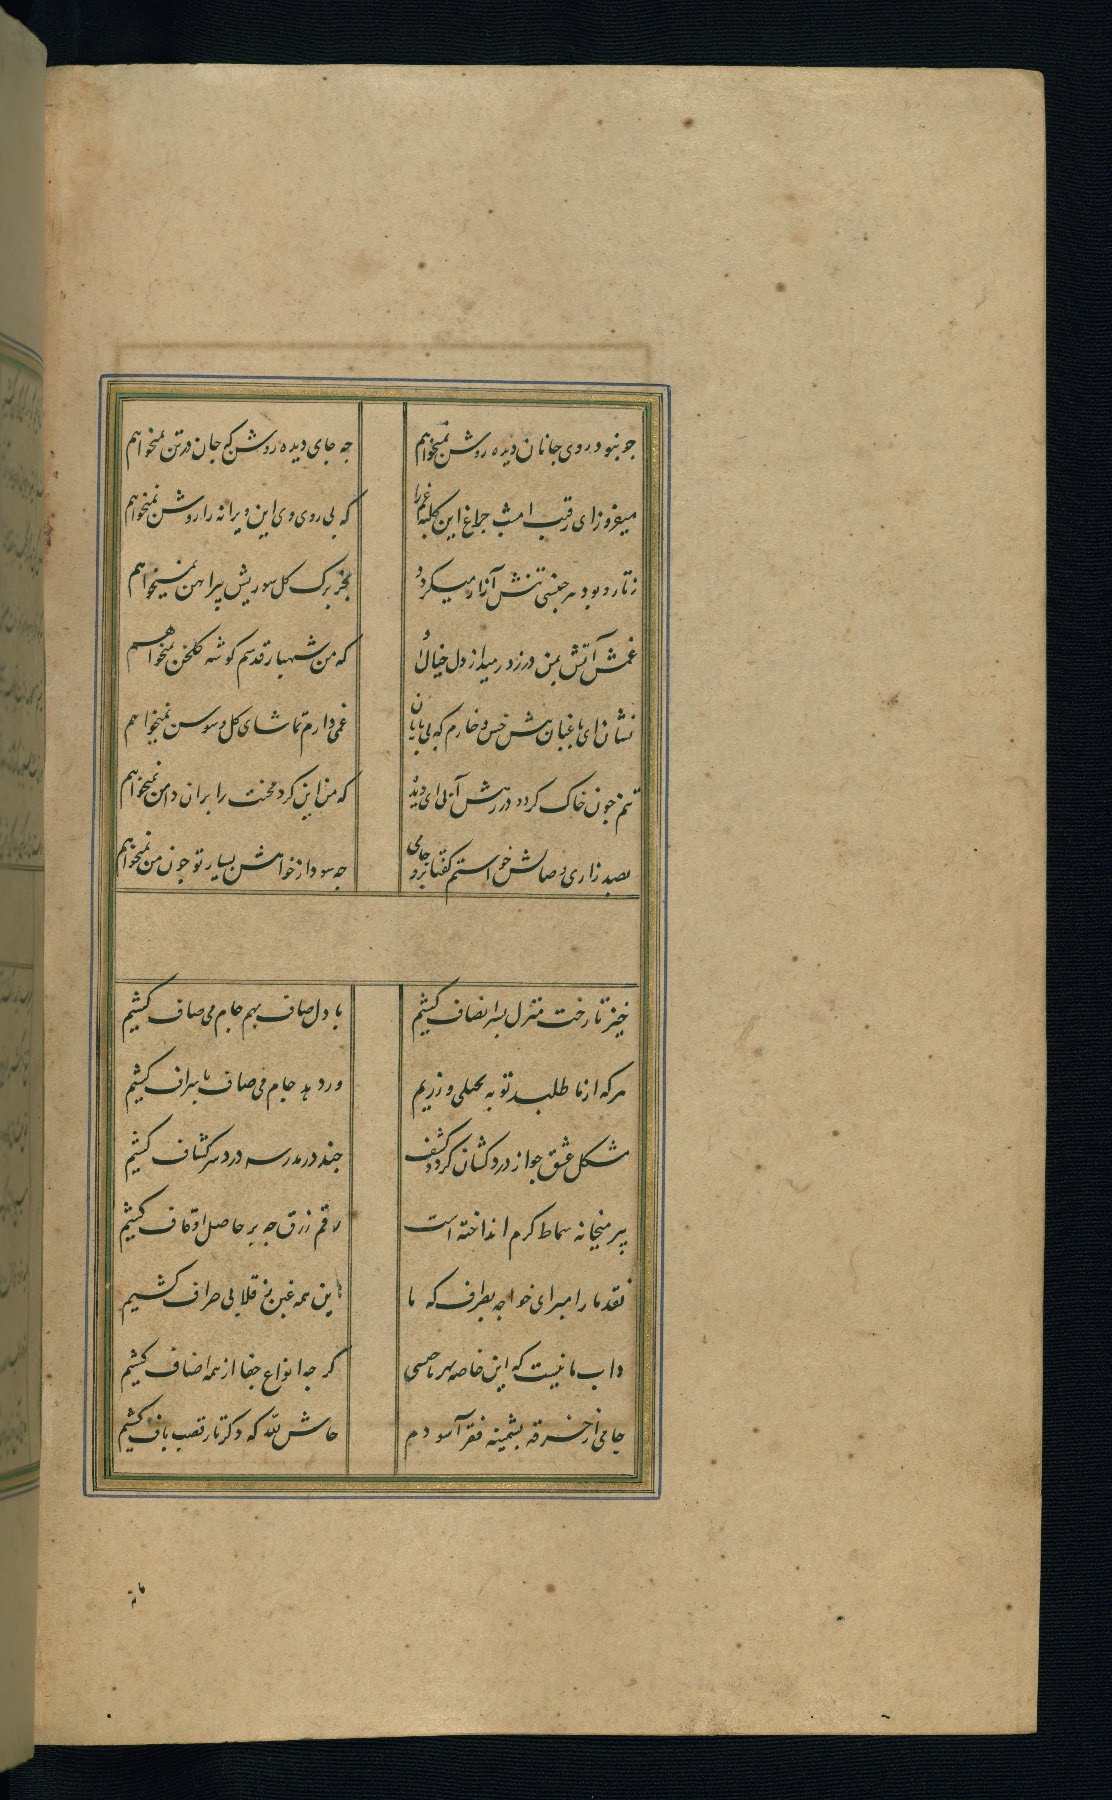 جو نبود روی جانان دیده روشن نمیخواهم جه جای دیده روشن که جان در تن نمیخواهم
میفروز ای رقیب امشب جراغ این کلبه غم را که بی روی وی این ویرانه را روشن نمیخواهم
ز تار و پود هر جنسی تنش آزار میکرد بجز برک کل سوریش پیراهن نمیخواهم
غمش آتش بمن در زد رمید از دل خیال او که من شهباز قدسم کوشه کلخن نمیخواهم
نشان ای باغبان پیش خس و خارم که بی یاران غمی دارم تماشای کل و سوسن نمیخواهم
تنم جون خاک کردد در رهش آبی ای دیده که من این کرد محنت را بران دامن نمیخواهم
بصد زاری وصالش خواستم کفتا برو جامی جه سود از خواهش بسیار تو جون من نمیخواهم
خیز تا رخت بمنزل بسر انصاف کشیم با دل صاف بهم جام می صاف کشیم
هر که از ما طلبد توبه بخیلی ورزیم ور دهد جام می صاف باسراف کشیم
مشکل عشق جو از دردکشان کردد کشف جند در مدرسه درد سر کشاف کشیم
پیر میخانه سماط کرم انداخته است رقم زرق جه بر حاصل اوقاف کشیم
نقد ما را مبر ای خواجه بصراف که ما این همه غبن ز قلابی صراف کشیم
داب ما نیست که این خاصه هر ناجنسی کر جه انواع جفا از همه اصناف کشیم
جامی از خرقه پشمینه فقر آسودم حاش لله که دکر ناز قصب باف کشیم